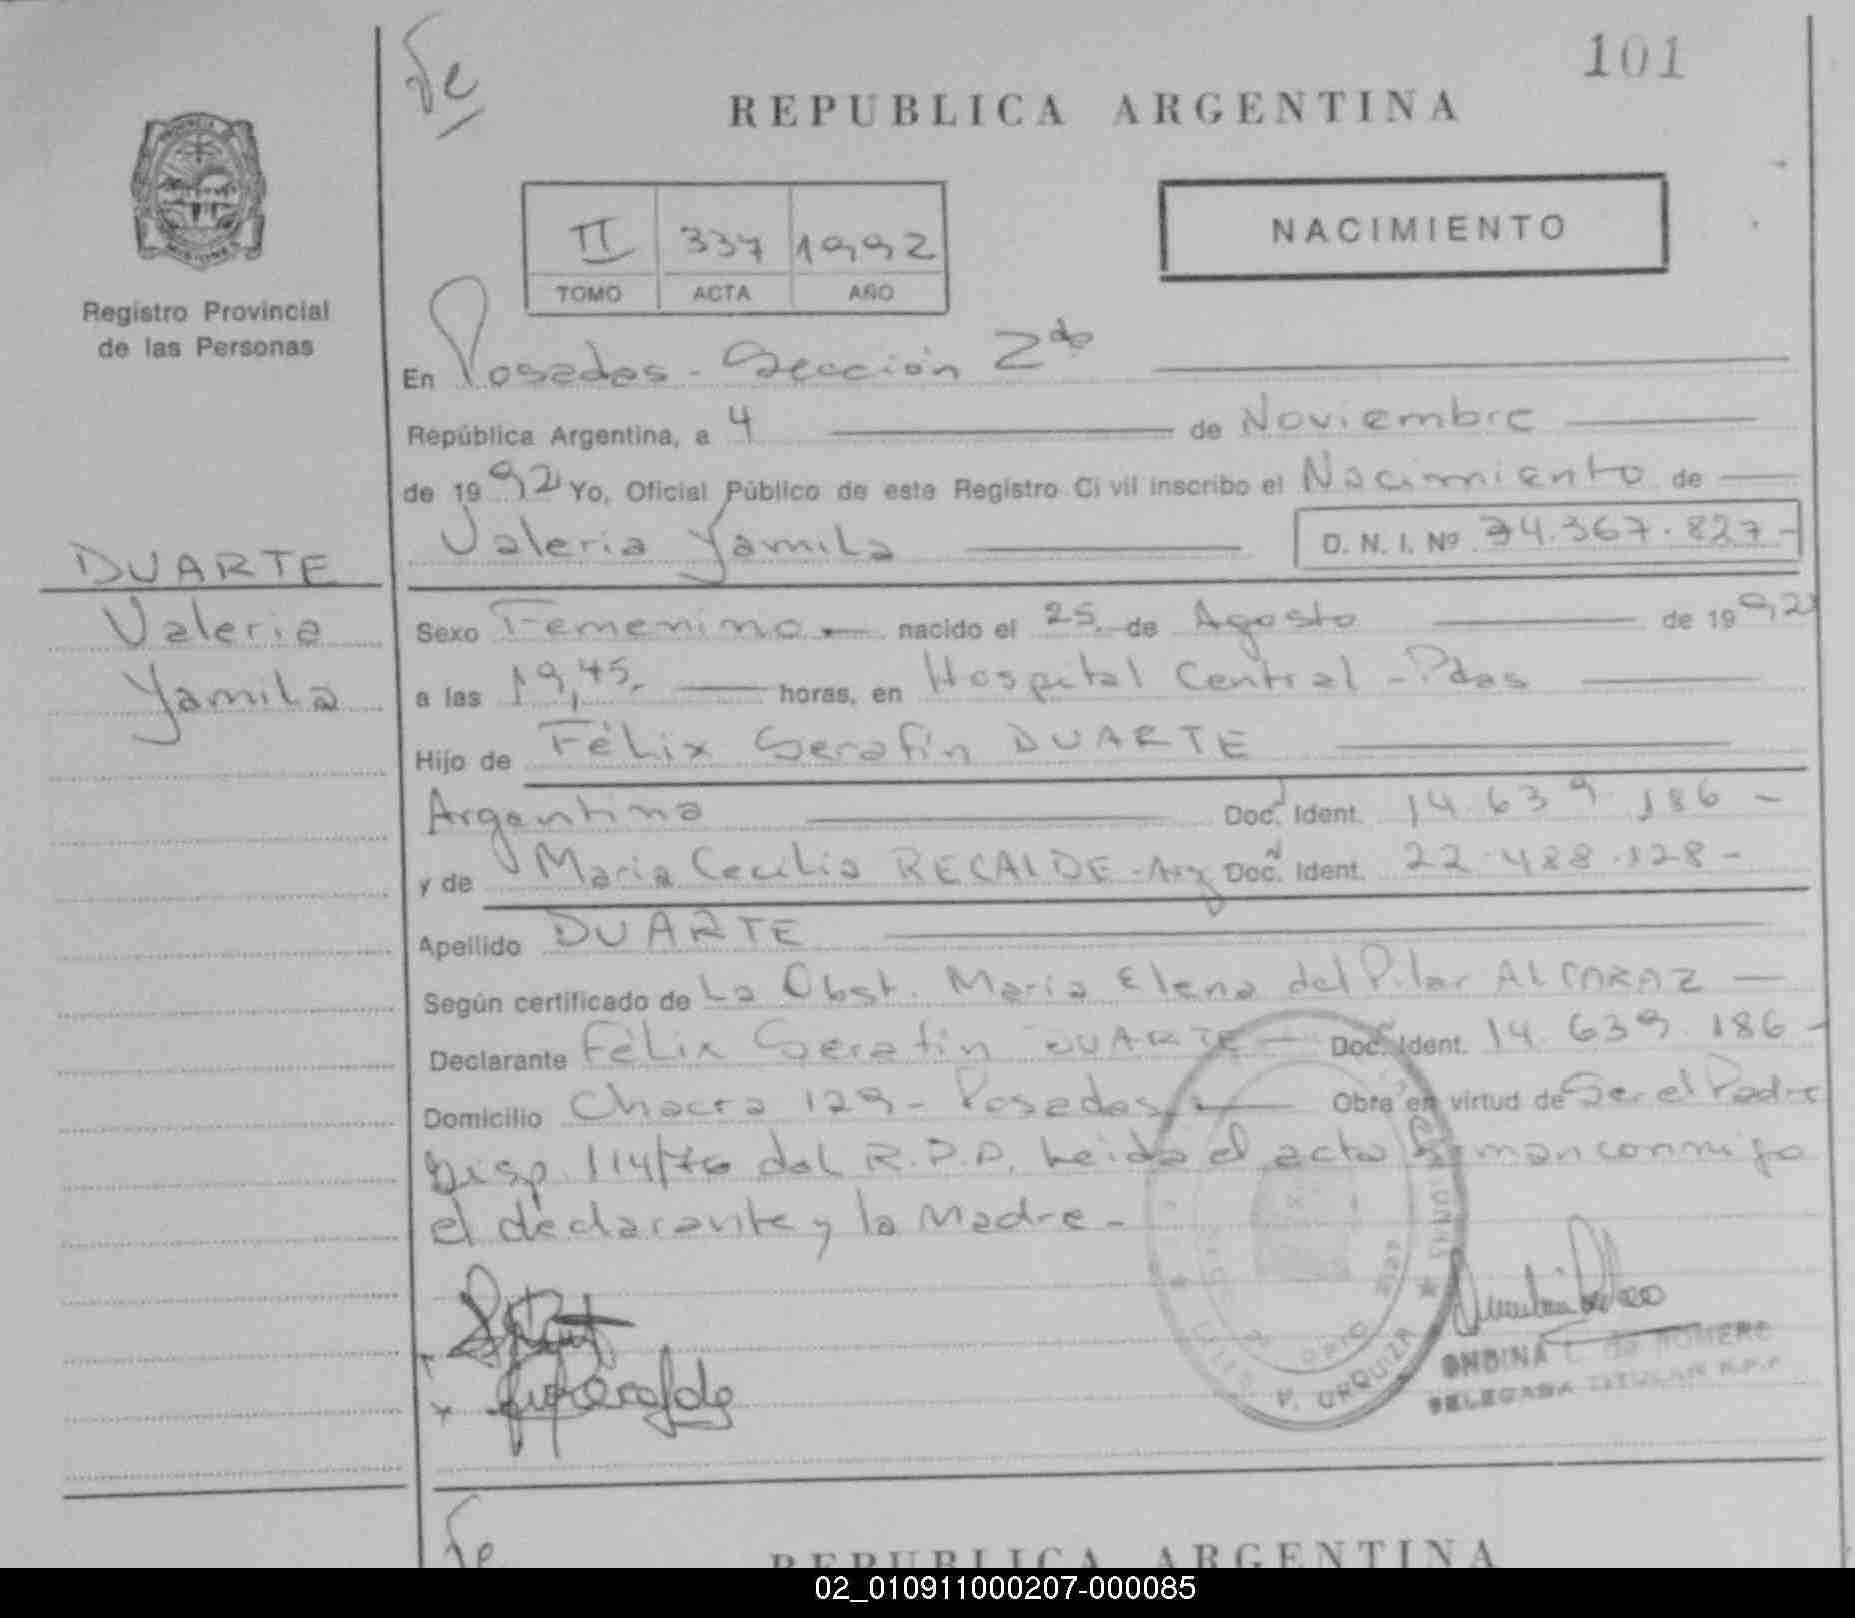 101
REPUBLICA ARGENTINA
NACIMIENTO
II 337 1992
TOMO ACTA AÑO
Registro Provincial
de las Personas
En Posadas - Sección 2da
República Argentina, a 4 de Noviembre
de 1992 Yo, Oficial Público de este Registro Civil inscribo el Nacimiento de
Valeria Yamila D. N. I. Nº 34.367.827-
DUARTE
Valeria
Yamila
Sexo Femenino nacido el 25 de Agosto de 1992
a las 19,45 horas, en Hospital Central - Pdas
Hijo de Félix Serafín DUARTE
Argentina Doc. Ident. 14.639.186 -
y de María Cecilia RECALDE - Arg Doc. Ident. 22.488.128 -
Apellido DUARTE
Según certificado de La Obst. María Elena del Pilar ALCARAZ
Declarante Félix Serafín DUARTE - Doc. Ident. 14.639.186 -
Domicilio Chacra 129 - Posadas Obra en virtud de Ser el Padre
Disp. 114/76 del R.P.P. Leída el acta firman conmigo
el declarante y la Madre -
P. URQUIZA
ONDINA de ROMERO
DELEGADA TITULAR R.P.P.
REPUBLICA ARGENTINA
02_010911000207-000085